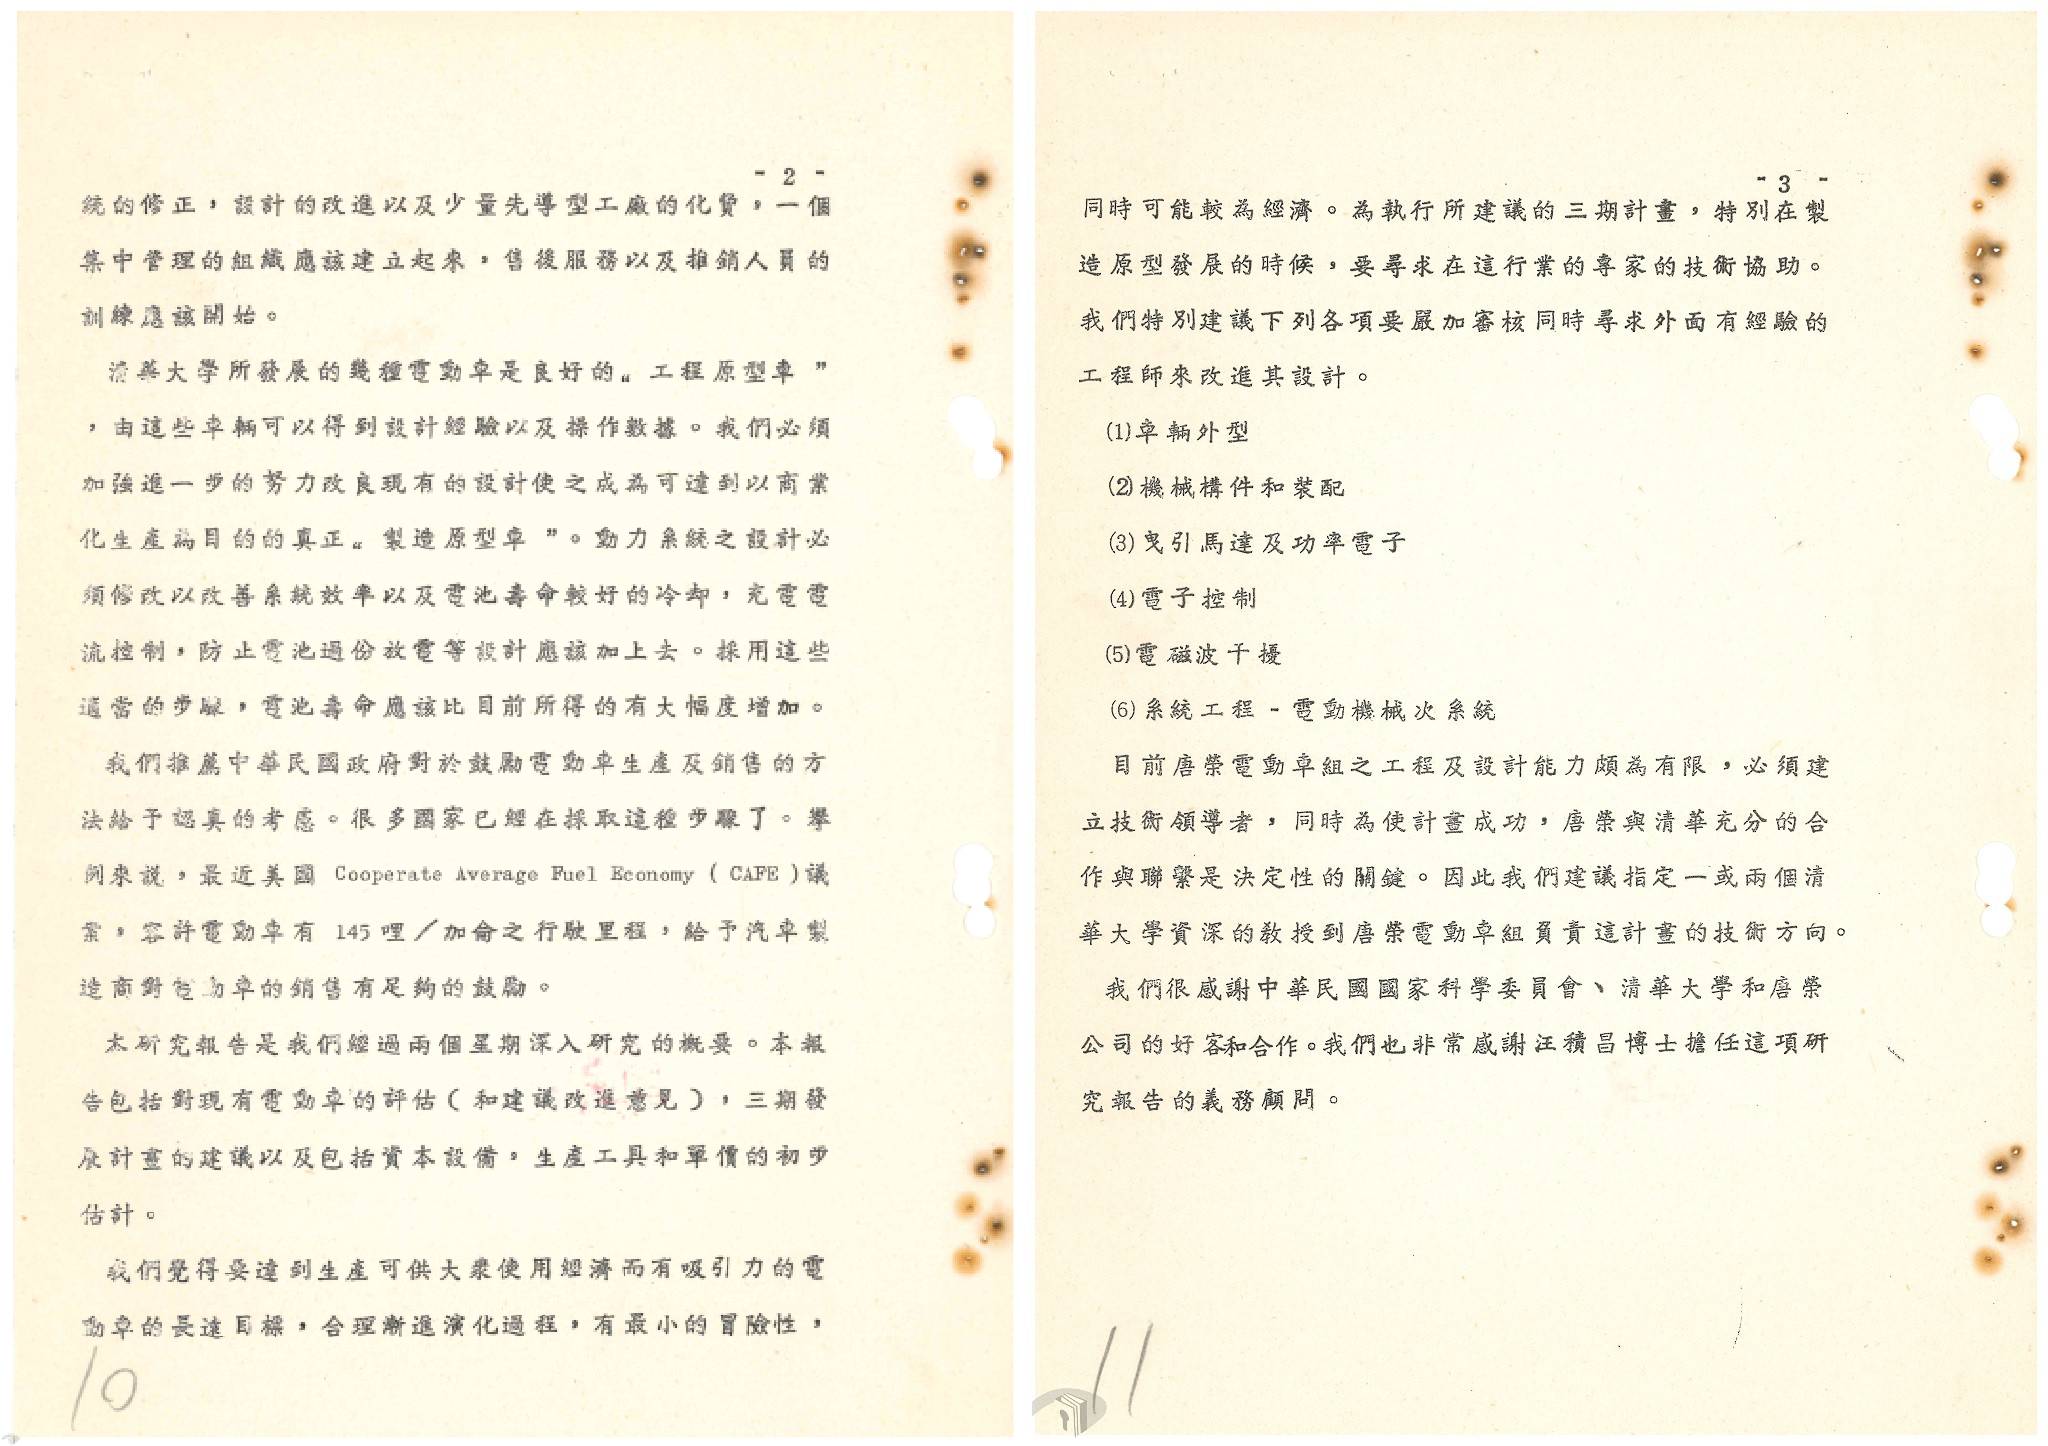 - 2 -
統的修正，設計的改進以及少量先導型工廠的化費，一個
集中管理的組織應該建立起來，售後服務以及推銷人員的
訓練應該開始。
清華大學所發展的幾種電動車是良好的〝工程原型車〞
，由這些車輛可以得到設計經驗以及操作數據。我們必須
加強進一步的努力改良現有的設計使之成為可達到以商業
化生產為目的的真正〝製造原型車〞。動力系統之設計必
須修改以改善系統效率以及電池壽命較好的冷却，充電電
流控制，防止電池過份放電等設計應該加上去。採用這些
適當的步驟，電池壽命應該比目前所得的有大幅度增加。
我們推薦中華民國政府對於鼓勵電動車生產及銷售的方
法給予認真的考慮。很多國家已經在採取這種步驟了。舉
例來說，最近美國 Cooperate Average Fuel Economy ( CAFE ) 議
案，容許電動車有 145 哩／加侖之行駛里程，給予汽車製
造商對電動車的銷售有足夠的鼓勵。
本研究報告是我們經過兩個星期深入研究的概要。本報
告包括對現有電動車的評估（和建議改進意見），三期發
展計畫的建議以及包括資本設備，生產工具和單價的初步
估計。
我們覺得要達到生產可供大衆使用經濟而有吸引力的電
動車的長遠目標，合理漸進演化過程，有最小的冒險性，
10
- 3 -
同時可能較為經濟。為執行所建議的三期計畫，特別在製
造原型發展的時候，要尋求在這行業的專家的技術協助。
我們特別建議下列各項要嚴加審核同時尋求外面有經驗的
工程師來改進其設計。
(1)車輛外型
(2)機械構件和裝配
(3)曳引馬達及功率電子
(4)電子控制
(5)電磁波干擾
(6)系統工程－電動機械次系統
目前唐榮電動車組之工程及設計能力頗為有限，必須建
立技術領導者，同時為使計畫成功，唐榮與清華充分的合
作與聯繫是決定性的關鍵。因此我們建議指定一或兩個清
華大學資深的教授到唐榮電動車組負責這計畫的技術方向。
我們很感謝中華民國國家科學委員會、清華大學和唐榮
公司的好客和合作。我們也非常感謝汪積昌博士擔任這項研
究報告的義務顧問。
11